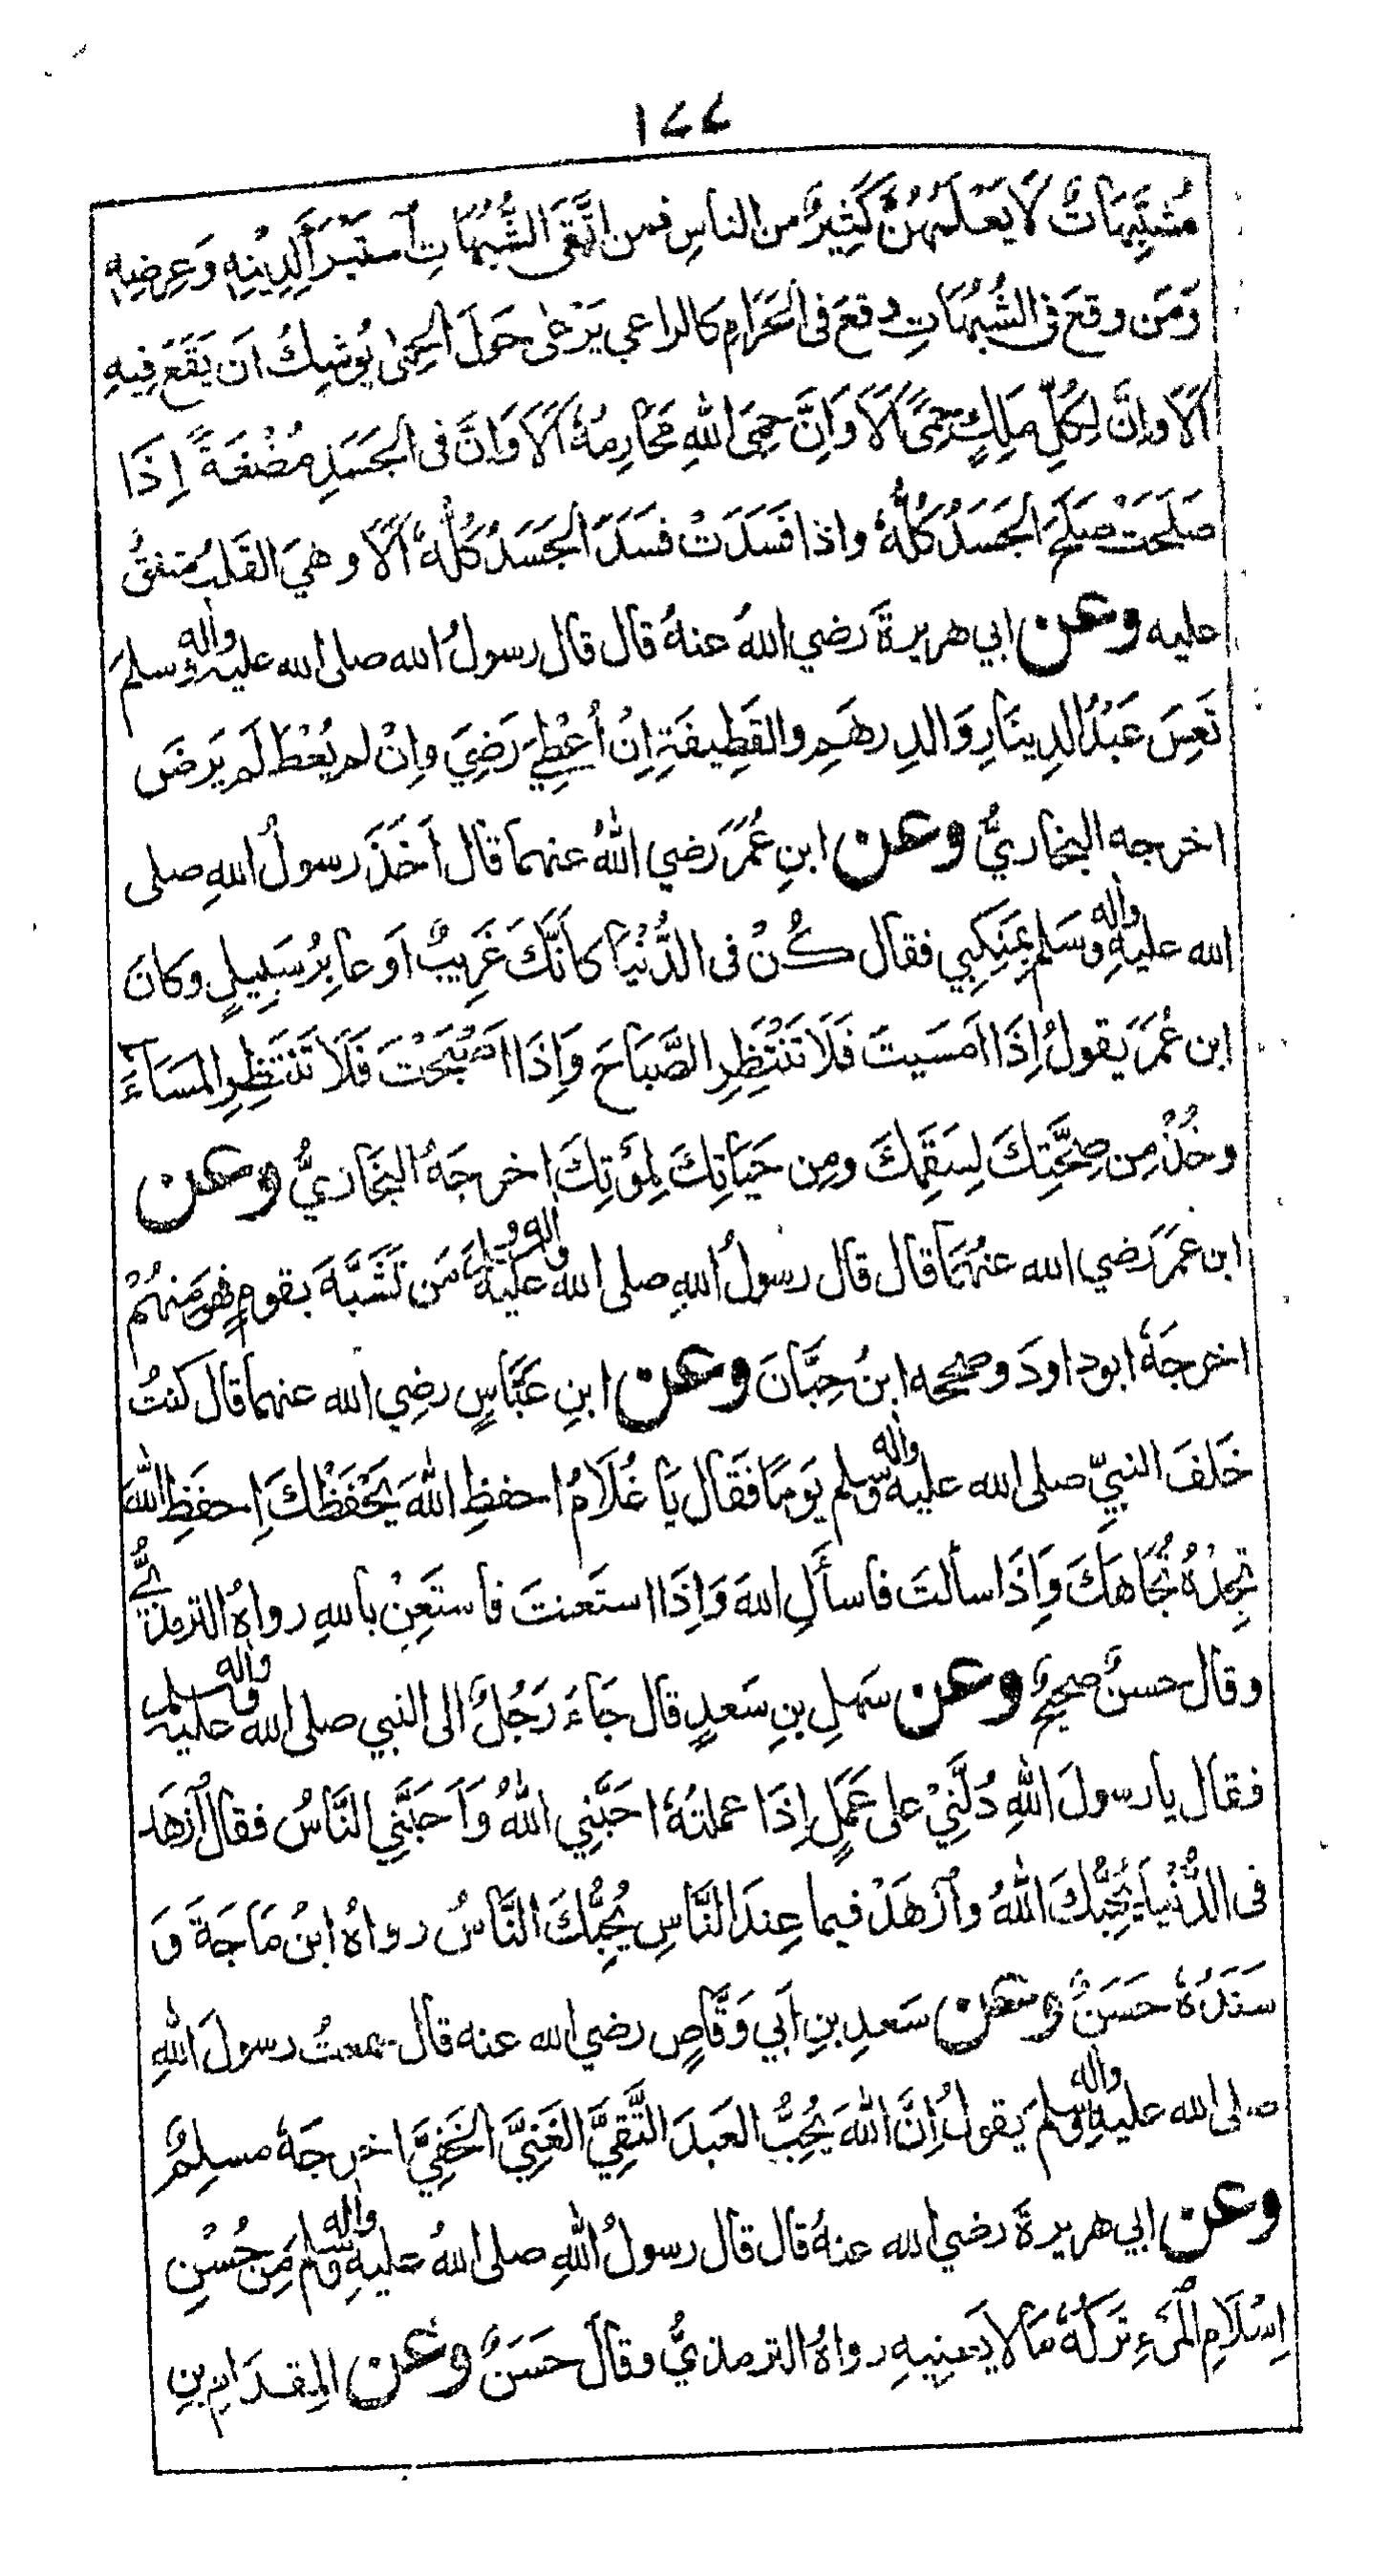 ١٧٧
مُشتَبِهَاتٌ لَا يَعْلَمُهُنَّ كَثِيرٌ من الناسِ فمن اتَّقَى الشُّبُهَاتِ اَستَبْرَأَ لِدِيْنِهِ وَعِرضِهِ
وَمَن وقعَ فى الشُبُهَاتِ وقعَ فى الحَرَامِ كالراعي يَرْعٰى حَولَ الحِمٰى يُوشِكُ اَن يَقَعَ فِيهِ
اَلَا وَاِنَّ لِكُلِّ مَلِكٍ حِمًى اَلَا وَاِنَّ حِمَى اللهِ مَحَارِمُهٗ اَلَا وَاِنَّ فى الجَسَدِ مُضْغَةً اِذَا
صَلَحَتْ صَلَحَ الجَسَدُ كُلُّهٗ واذا فَسَدَتْ فسَدَ الجَسَدُ كُلُّهٗ اَلَا وهيَ القَلبُ متفقٌ
عليه وعن ابي هريرةَ رضي اللهُ عنهُ قال قال رسولُ الله صلى الله عليه واٰله وسلمَ
تَعِسَ عَبْدُ الدِينَارِ وَالدِرهَمِ والقَطِيفَةِ اِنْ اُعْطِيَ رَضِيَ واِنْ لم يُعْطَ لَم يَرضَ
اخرجه البخاريُّ وعن ابنِ عُمَرَ رضي اللهُ عنهما قال اَخَذَ رسولُ اللهِ صلى
الله عليهِ واٰله وسَلم بِمَنكِبِي فقال كُنْ فى الدُّنْيَا كأنَّكَ غَرِيبٌ اَو عابِرُ سَبِيلٍ وكانَ
ابن عُمَرَ يقولُ اِذَا اَمسَيتَ فَلَا تَنْتَظِرِ الصَّبَاحَ وَاِذَا اَصْبَحْتَ فَلَا تَنتَظِرِ المَسَاءَ
وخُذْ مِن صِحَّتِكَ لِسَقَمِكَ ومِن حَيَاتِكَ لِمَوتِكَ اخرجَهُ البُخَاريُّ وعن
ابن عمَرَ رَضي الله عنهُمَا قال قال رسولُ اللهِ صلى الله عليه واٰله وسلم مَن تَشَبَّهَ بقومٍ فهو مِنهُمْ
اخرجَهٗ ابو داودَ وصححه ابنُ حِبَّانَ وعن ابنِ عَبَّاسٍ رضِي الله عنهما قال كنتُ
خَلفَ النبيّ صلى الله عليه واٰله وسلم يَومًا فَقَال يَا غُلَامُ احفظِ اللهَ يَحْفَظْكَ اِحفَظِ اللهَ
تجِدْهُ تُجَاهَكَ وَاِذَا سألتَ فاسأَلِ اللهَ وَاِذَا استَعنتَ فاستَعِنْ باللهِ رواهُ الترمذيُّ
وقال حسنٌ صحيحٌ وعن سَهلِ بنِ سَعدٍ قال جَاءَ رَجُلٌ الى النبي صلى الله عليه واٰله وسلم
فقال يا رسولَ اللهِ دُلَّنِيْ على عَمَلٍ اِذَا عملتُهٗ احَبَّنِي اللهُ وَاَحَبَّنِي النَّاسُ فقال اُزهَد
فى الدُّنْيَا يُحِبُّكَ اللهُ واُزهَدْ فيما عِندَ النَّاسِ يُحِبُّكَ النَّاسُ رواهُ ابنُ مَاجَةَ وَ
سَنَدُهٗ حَسَنٌ وعن سَعدِ بنِ اَبي وَقَّاصٍ رضي الله عنه قال سمعتُ رسولَ اللهِ
صلى الله عليهِ واٰله وسلمَ يَقولُ اِنَّ اللهَ يُحِبُّ العَبدَ التَّقِيَّ الغَنِيَّ الخَفِيَّ اخرجَهٗ مسلِمٌ
وعن ابي هريرةَ رضي الله عنهُ قال قال رسولُ اللهِ صلى اللهُ عليهِ واٰله وسلم مِن حُسْنِ
اِسْلَامِ المَرءِ تَركُهٗ مَا لا يَعنِيهِ رواهُ الترمذيُّ وقال حَسَنٌ وعن المِقدَامِ بنِ